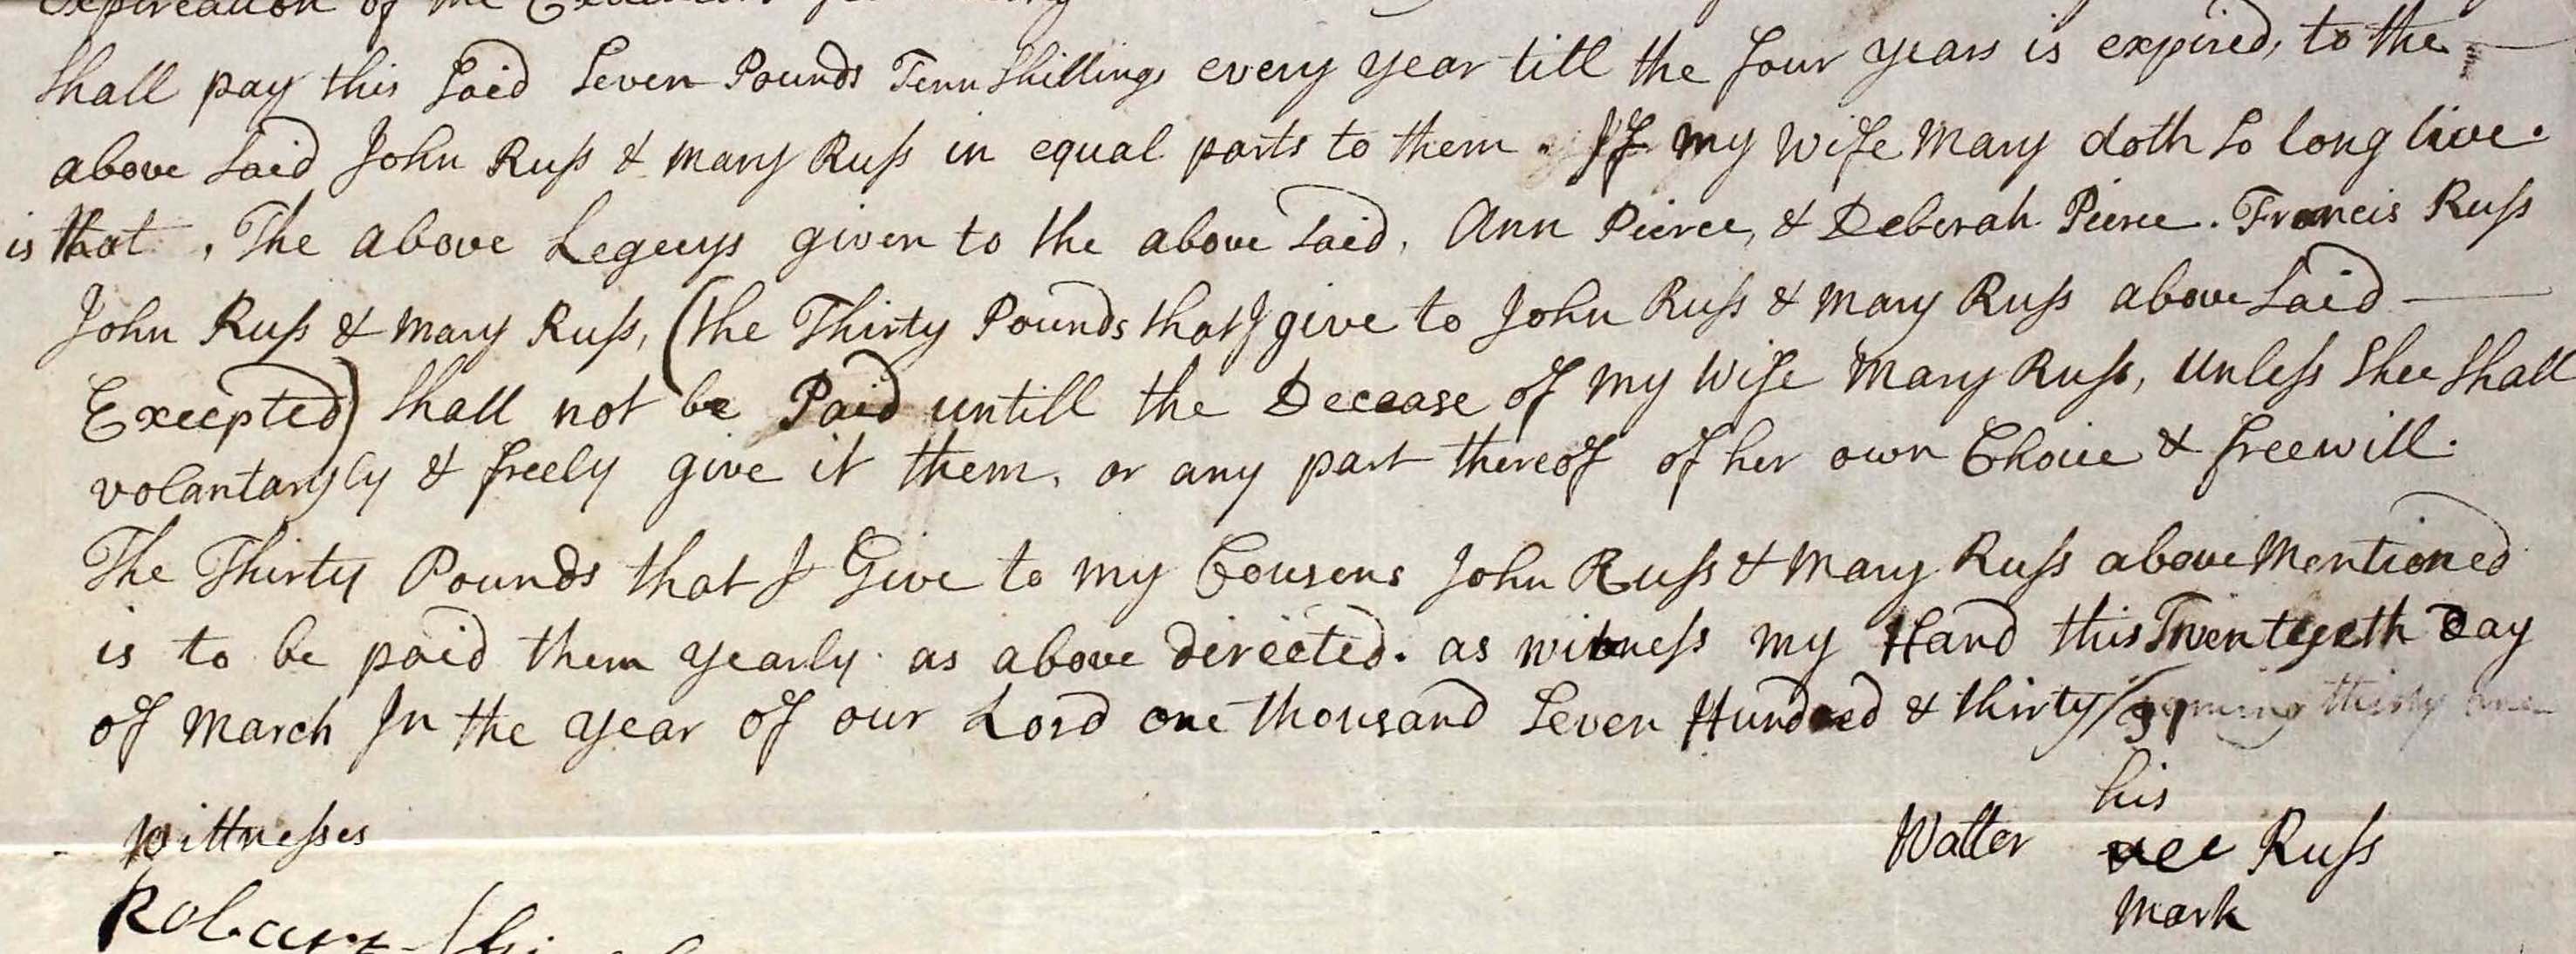 Expireation of the
shall pay this said seven Pounds Tenn shillings every year till the four years is expired, to the
above said John Russ & mary Russ in equal parts to them. If my wife Mary doth so long live.
is that, The above Legecys given to the above said, Ann Pierce, & Deborah Pierce. Francis Russ
John Russ & Mary Russ, (the Thirty Pounds that I give to John Russ & Mary Russ above said
Excepted) shall not be Paid untill the Decease of my wife Mary Russ, unless shee shall
volantaryly & freely give it them, or any part thereof of her own Choice & freewill.
The Thirty Pounds that I Give to my Cousens John Russ & Mary Russ above Mentioned
is to be paid them yearly as above directed. as witness my Hand this Twentyeth Day
of March In the year of our Lord one thousand seven Hundred & thirty/31 thirty one
his
Wittnesses Walter Russ
mark
Robart